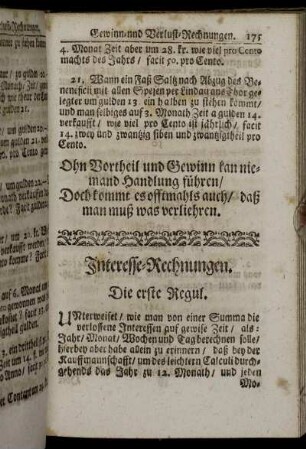 Gewinn- und Verlust-Rechnungen. 175
4. Monat Zeit aber um 28. kr. wie viel pro Cento
machts des Jahrs / facit 50. pro Cento.
21. Wann ein Faß Saltz nach Abzug das Be-
neneficii mit allen Spesen per Lindau ans Thor ge-
legter um gulden 13. ein halben zu stehen kommt /
und man selbiges auf 3. Monath Zeit a gulden 14.
verkaufft / wie viel pro Cento ist jährlich / facit
14. zwey und zwantzig siben und zwantzigtheil pro
Cento.
Ohn Vortheil und Gewinn kan nie-
mand Handlung führen /
Doch kommt es offtmahls auch / daß
man muß was verliehren.
Interesse-Rechnungen.
Die erste Regul.
Unterweiset / wie man von einer Summa die
verflossene Interessen auf gewise Zeit / als:
Jahr / Monat / Wochen und Tag berechnen solle /
hierbey aber habe allein zu erinnern / daß bey der
Kauffmannschafft / um des leichtern Calculi durch-
gehends das Jahr zu 12. Monath / und jeden
Mo-